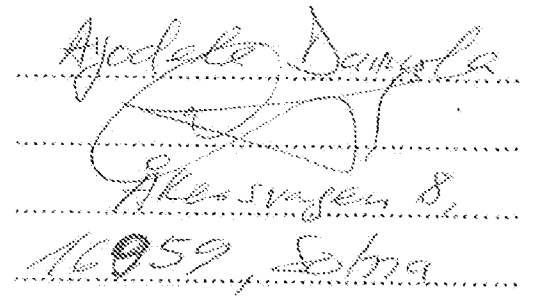 Ayodele Damola
Åkersvägen 8,
16959, Solna